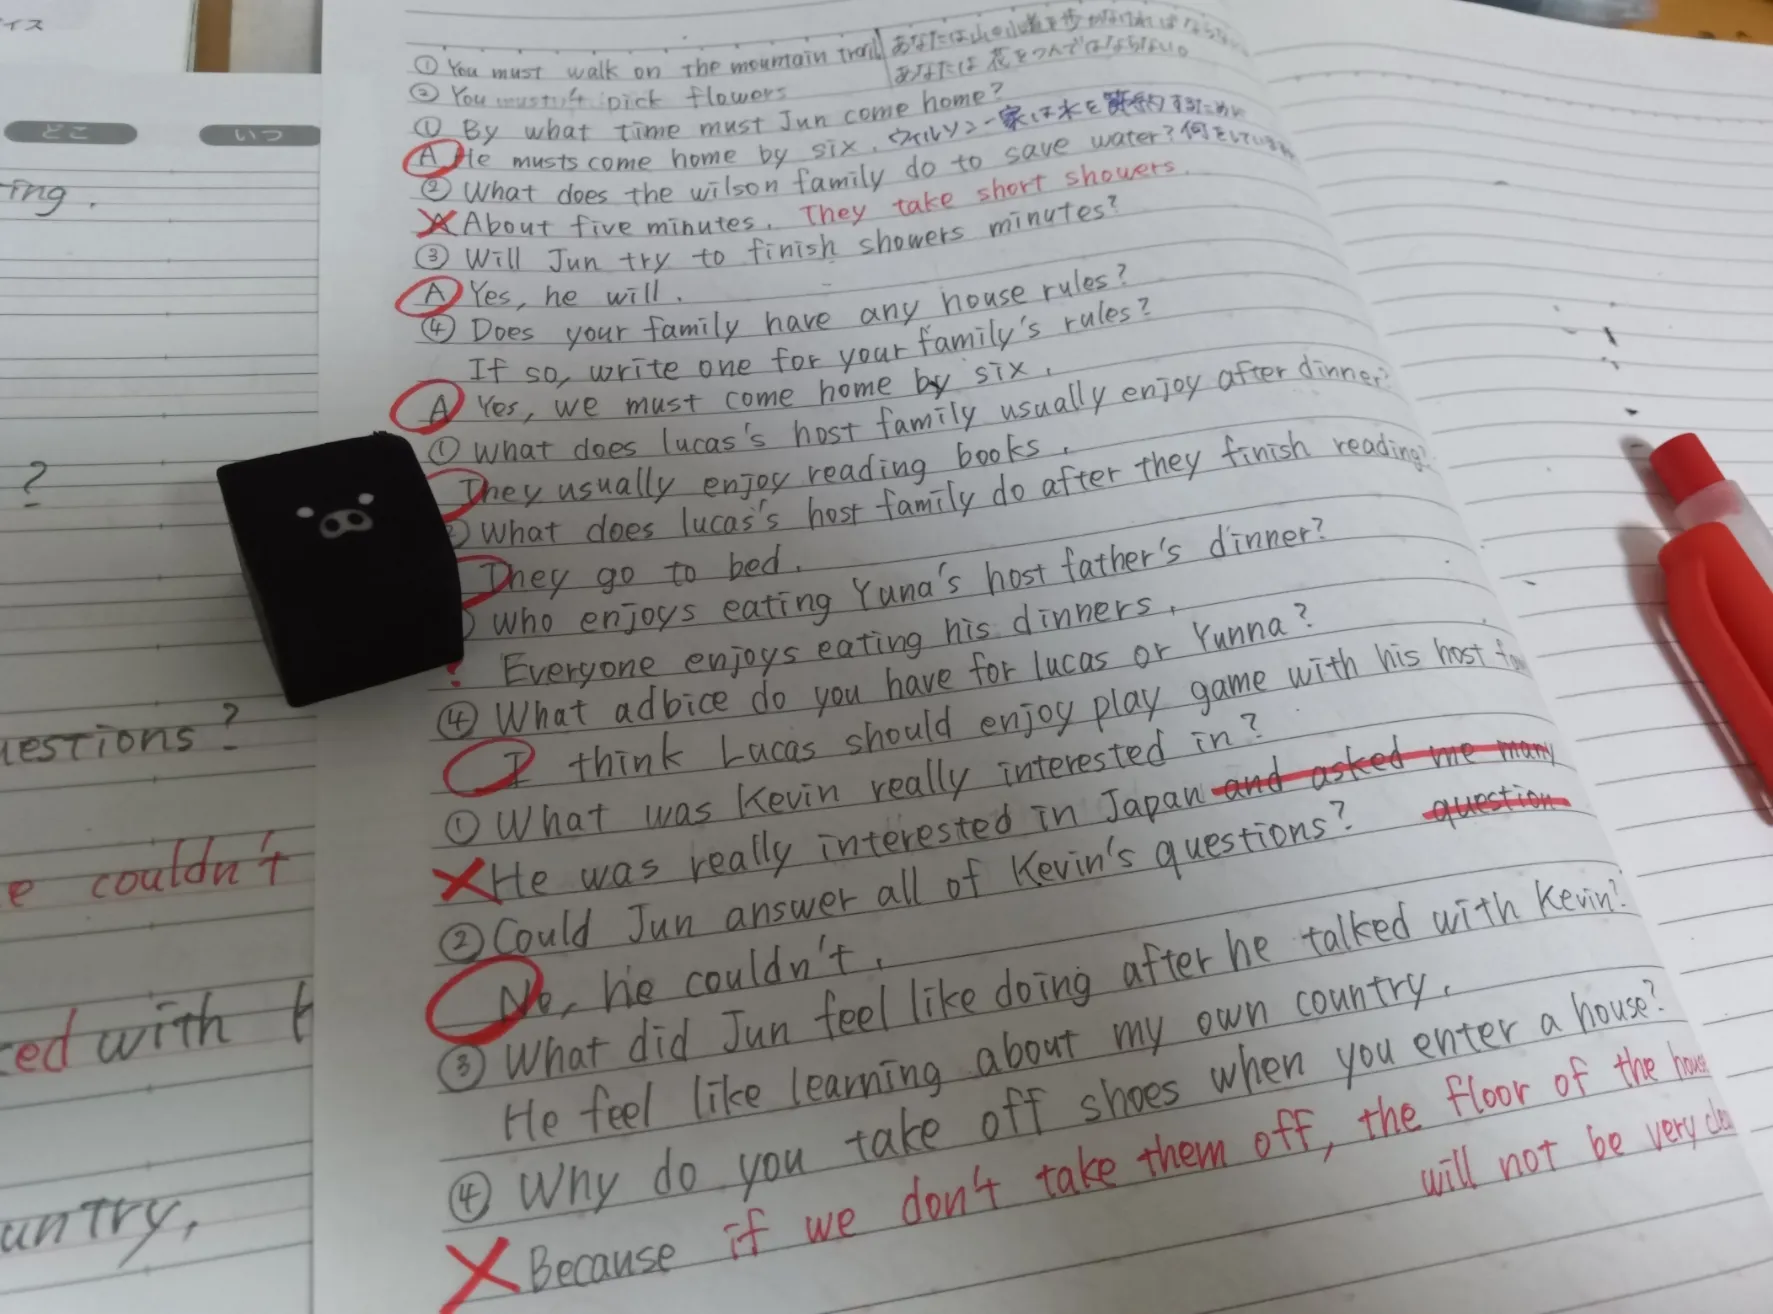 イス
どこ
いつ
ing.
?
uestions?
e couldn't
ed with t
untry,
① You must walk on the mountain trail あなたは山の小道を歩かなければならない
② You mustn't pick flowers あなたは花をつんではならない。
① By what time must Jun come home?
A He musts come home by six. ウィルソン一家は水を節約するために
② What does the wilson family do to save water? 何をしていますか
A About five minutes. They take short showers.
③ Will Jun try to finish showers minutes?
A Yes, he will.
④ Does your family have any house rules?
If so, write one for your family's rules?
A Yes, we must come home by six.
① What does lucas's host family usually enjoy after dinner?
They usually enjoy reading books.
② What does lucas's host family do after they finish reading?
They go to bed.
Who enjoys eating Yuna's host father's dinner?
Everyone enjoys eating his dinners.
④ What adbice do you have for lucas or Yunna?
I think Lucas should enjoy play game with his host fam
① What was Kevin really interested in?
He was really interested in Japan and asked me many
question
② Could Jun answer all of Kevin's questions?
No, he couldn't.
③ What did Jun feel like doing after he talked with Kevin?
He feel like learning about my own country.
④ Why do you take off shoes when you enter a house?
Because if we don't take them off, the floor of the house
will not be very clea